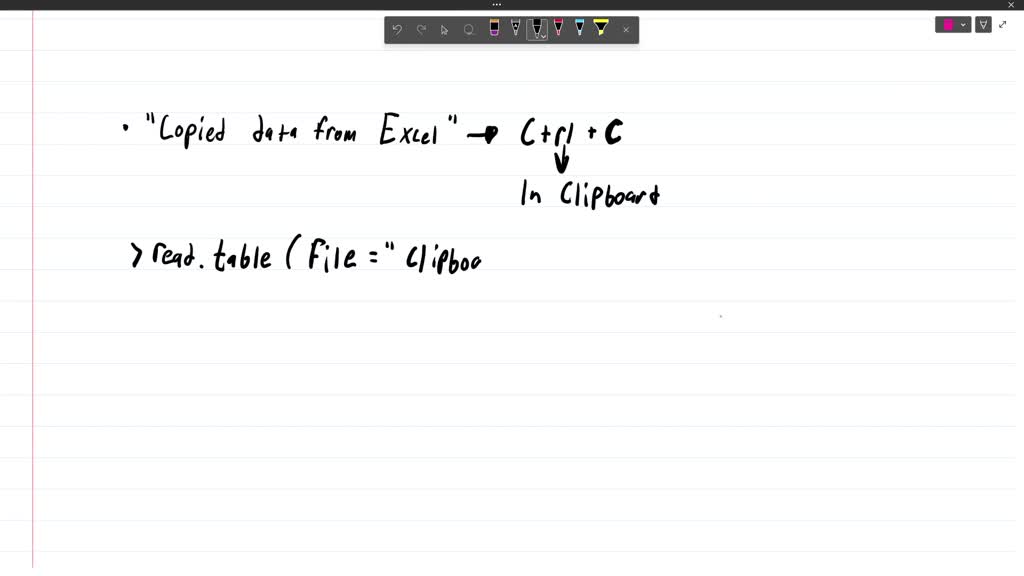 • "Copied data from Excel" → Ctrl + C
↓
In Clipboard
> read.table (File = " Clipboa